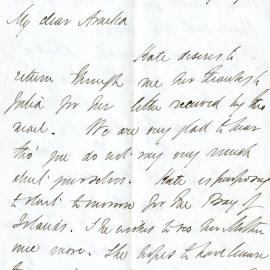 My dear Amelia
Kate desires to
return through me her thanks to
Julia for her letter received by this
mail. We are very glad to hear
tho' you do not say very much
about yourselves. Kate is purposing
to start tomorrow for the Bay of
Islands. She wishes to see her Mother
once more. She hopes to have leave